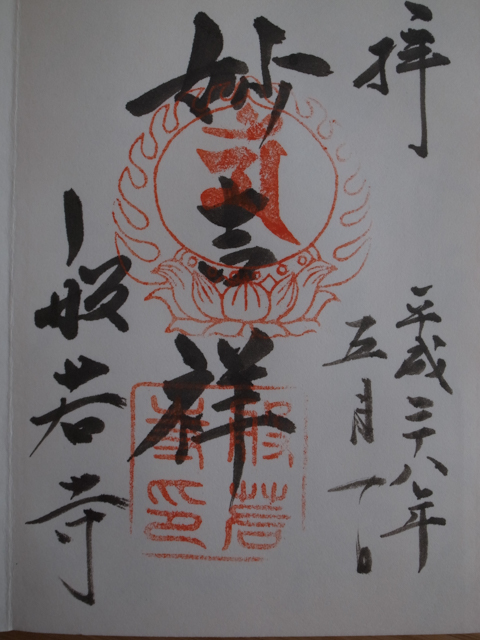 拝
平成二十八年
五月十日
妙吉祥
般若寺
般若
寺印